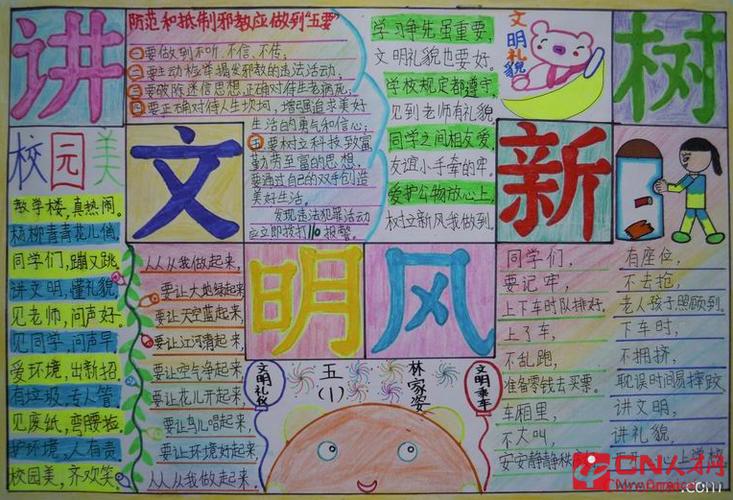 讲
文
明
树
新
风
防范和抵制邪教应做到"五要"
一要做到不听、不信、不传;
二要主动检举揭发邪教的违法活动;
三要破除迷信思想,正确对待生老病死;
四要正确对待人生坎坷,增强追求美好
生活的勇气和信心;
五要树立科技致富,
勤劳至富的思想,
要通过自己的双手创造
美好生活。
发现违法犯罪活动
应立即拨打110报警。
学习争先虽重要,
文明礼貌也要好。
学校规定都遵守,
见到老师有礼貌。
同学之间相友爱,
友谊小手牵的牢。
爱护公物放心上,
树立新风我做到。
文明礼貌
校园美
教学楼,真热闹。
杨柳青青花儿俏。
同学们,蹦又跳,
讲文明,懂礼貌,
见老师,问声好。
见同学,问声早
爱环境,出新招,
有垃圾,专人管
见废纸,弯腰捡
护环境,人有责。
校园美,齐欢笑。
人人从我做起来,
要让大地绿起来
要让天空蓝起来,
要让江河清起来,
要让空气净起来,
要让花儿开起来,
要让鸟儿唱起来,
要让环境好起来,
人人从我做起来。
文明礼仪
五(1)
林家姿
文明乘车
同学们,
要记牢,
上下车时队排好。
上了车,
不乱跑,
准备零钱去买票。
车相里,
不大叫,
安安静静秩
有座位,
不去抢,
老人孩子照顾到。
下车时,
不拥挤,
耽误时间易摔跤
讲文明,
讲礼貌,
心上学校
CN人才网
www.cnrencai.com